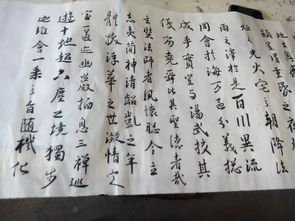 地玄奧感懇
顯豈謂重昏之夜燭
之光火宅之朝降法
雨之澤於是百川異流
同會於海万區分義揔
成乎實豈與湯武挍其
優劣堯舜比其聖德者哉
玄奘法師者夙懷聰令立
志夷簡神清齠齔之年
體拔浮華之世凝情定
室匿迹幽巖栖息三禪巡
遊十地超六塵之境獨步
迦維會一乘之旨隨機化